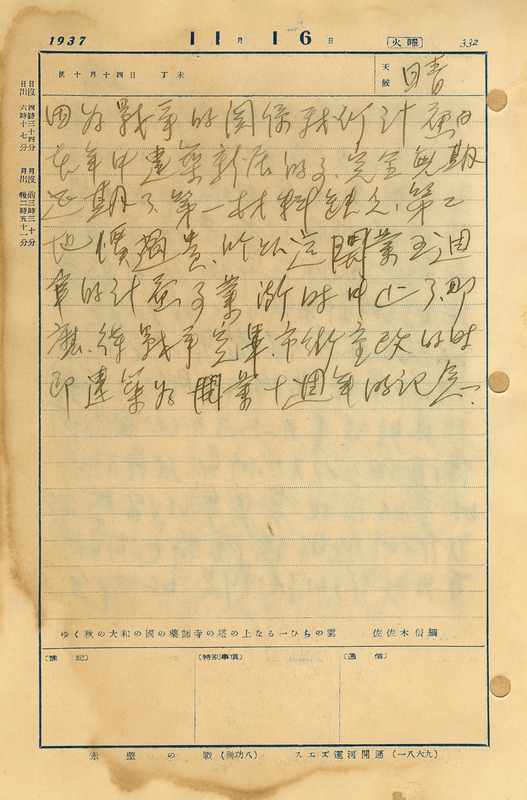 1937 11月16日 火曜 332
舊十月十四日 丁未
天候 晴
日出 六時十七分
日沒 四時三十四分
月出 後二時五十一分
月沒 前三時三十分
因為戰爭的關係我們計画
在年中建築新居的了、完全無期
延期了、第一材料缺乏、第二
地價過貴、所以這開業五週
年的計画事業漸時中止了、即
應待戰爭完畢、市街重改的時
即建築為開業十週年的記念、
ゆく秋の大和の國の藥師寺の塔の上なる一ひらの雲 佐佐木信綱
〔雜記〕
〔特別事項〕
〔通信〕
赤壁の戰 スエズ運河開通(一八六九)